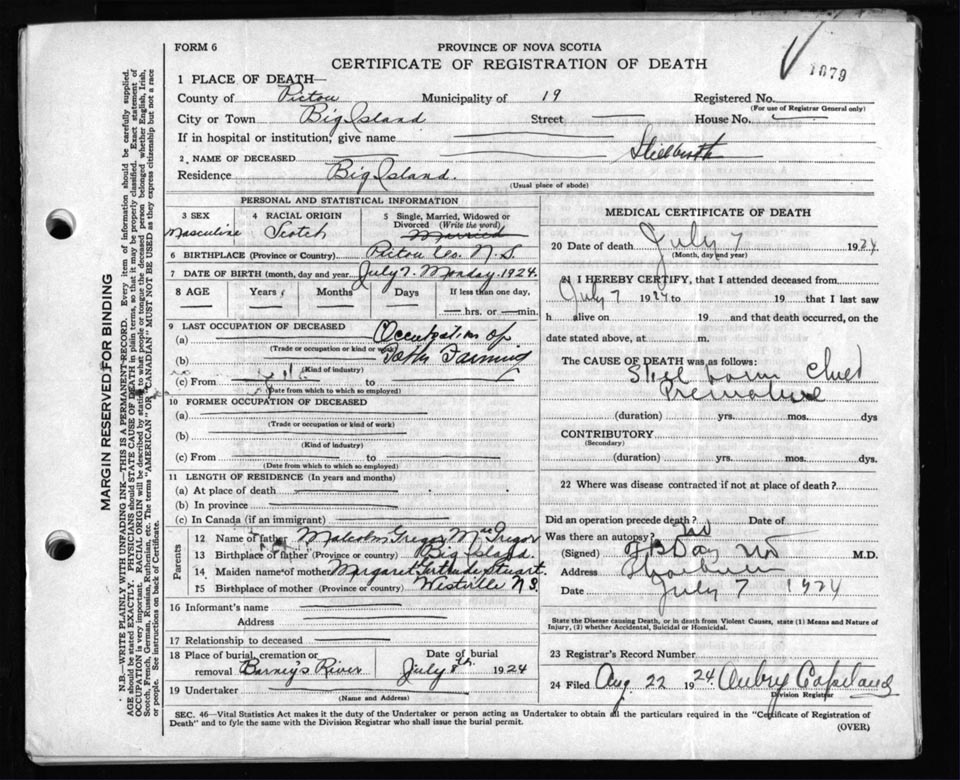 FORM 6
PROVINCE OF NOVA SCOTIA
CERTIFICATE OF REGISTRATION OF DEATH
1079
1 PLACE OF DEATH—
County of Pictou Municipality of 19 Registered No.
(For use of Registrar General only)
City or Town Big Island Street House No.
If in hospital or institution, give name
2. NAME OF DECEASED Stillbirth
Residence Big Island.
(Usual place of abode)
PERSONAL AND STATISTICAL INFORMATION
3 SEX Masculine
4 RACIAL ORIGIN Scotch
5 Single, Married, Widowed or Divorced (Write the word)
6 BIRTHPLACE (Province or Country) Pictou Co. N.S.
7 DATE OF BIRTH (month, day and year) July 7. Monday. 1924.
8 AGE Years Months Days If less than one day, hrs. or min.
9 LAST OCCUPATION OF DECEASED Occupation of
(a)
(Trade or occupation or kind of work)
(b) Farming
(Kind of industry)
(c) From to
(Date from which to which so employed)
10 FORMER OCCUPATION OF DECEASED
(a)
(Trade or occupation or kind of work)
(b)
(Kind of industry)
(c) From to
(Date from which to which so employed)
11 LENGTH OF RESIDENCE (In years and months)
(a) At place of death
(b) In province
(c) In Canada (if an immigrant)
Parents
12 Name of father Malcolm Gregor McGregor
13 Birthplace of father (Province or country) Big Island.
14 Maiden name of mother Margaret Gertrude Stuart.
15 Birthplace of mother (Province or country) Westville N.S.
16 Informant's name
Address
17 Relationship to deceased
18 Place of burial, cremation or removal Barney's River Date of burial July 8th 1924
19 Undertaker
(Name and Address)
MEDICAL CERTIFICATE OF DEATH
20 Date of death July 7 1924
(Month, day and year)
21 I HEREBY CERTIFY, that I attended deceased from
July 7 1924 to 19 that I last saw
h alive on 19 and that death occurred, on the
date stated above, at m.
The CAUSE OF DEATH was as follows:
Still born Child
Premature
(duration) yrs. mos. dys
CONTRIBUTORY
(Secondary)
(duration) yrs. mos. dys.
22 Where was disease contracted if not at place of death?
Did an operation precede death? Date of
Was there an autopsy?
(Signed) Day M.D.
Address
Date July 7 1924
State the Disease causing Death, or in death from Violent Causes, state (1) Means and Nature of Injury, (2) whether Accidental, Suicidal or Homicidal.
23 Registrar's Record Number
24 Filed Aug 22 1924. Aubry Copeland
Division Registrar
SEC. 46—Vital Statistics Act makes it the duty of the Undertaker or person acting as Undertaker to obtain all the particulars required in the "Certificate of Registration of
Death" and to file the same with the Division Registrar who shall issue the burial permit.
(OVER)
MARGIN RESERVED FOR BINDING
N.B.—WRITE PLAINLY WITH UNFADING INK—THIS IS A PERMANENT RECORD. Every item of information should be carefully supplied.
AGE should be stated EXACTLY. PHYSICIANS should STATE CAUSE OF DEATH in plain terms, so that it may be properly classified. Exact statement of
OCCUPATION is very important. RACIAL ORIGIN will be described by stating to what people or tongue the deceased person belonged whether English, Irish,
Scotch, French, German, Russian, Ruthenian, etc. The terms "AMERICAN" OR "CANADIAN" MUST NOT BE USED as they express citizenship but not a race
or people. See instructions on back of Certificate.